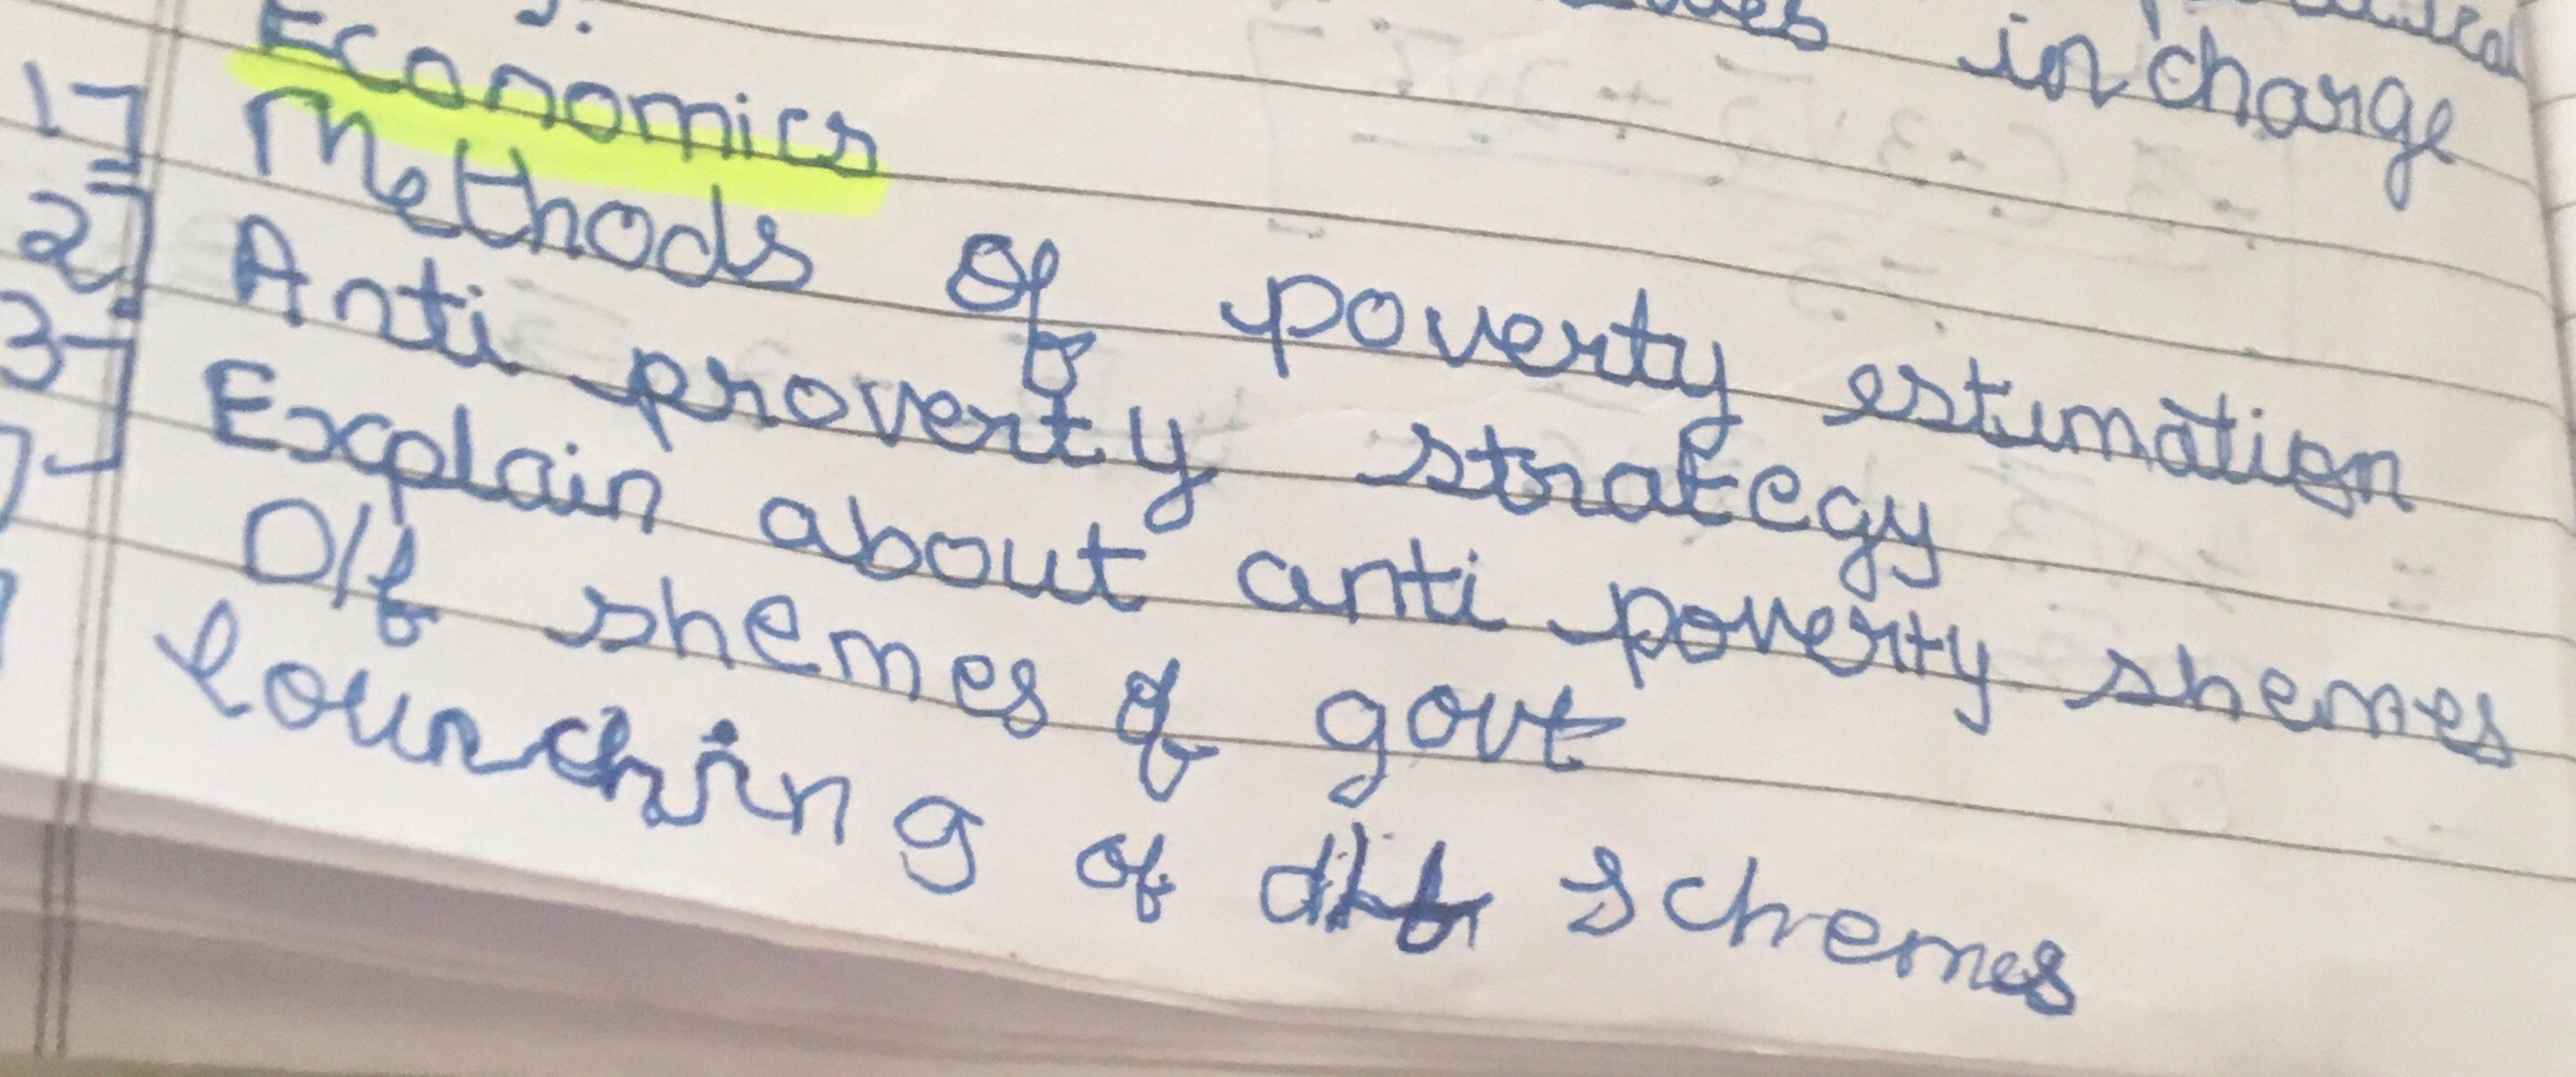 in charge
Economics
1] Methods of poverty estimation
2] Anti proverty strategy
3] Explain about anti poverty shemes
D/f shemes of govt
lounching of schemes